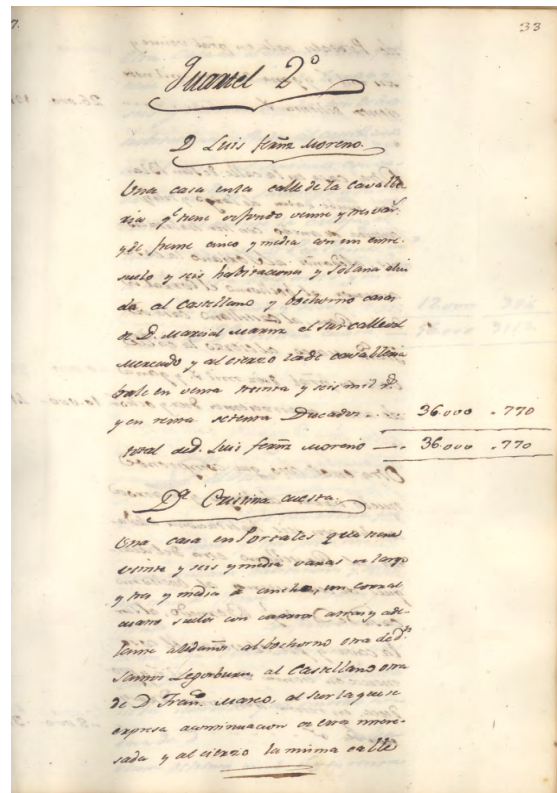 33
Quartel 2º
D. Luis fernz Moreno.
Una casa en la calle de la Cavalle
ria qe tiene de fondo veinte y tres var.
y de frente cinco y media con un entre-
suelo y seis habitaciones y solana alin
da al Castellano y bochorno casa
de D. Marcial al sur calle del
Mercado y al cierzo la de Cavalleria
bale en venta treinta y seis mil r.
y en renta setenta Ducados ... 36.000 . 770
total de d. Luis fernz Moreno — . 36.000 . 770
Dª Cristina Cuesta.
Una casa en Portales que tiene
veinte y seis y media varas de largo
y tres y media de ancho, un corral
cuatro suelos con cuartos atras y ade-
lante alidaños al bochorno otra de D.
Santos Leporburu, al Castellano otra
de D. Franco Marco, al sur la que se
expresa a continuacion de esta intere-
sada y al cierzo la misma calle